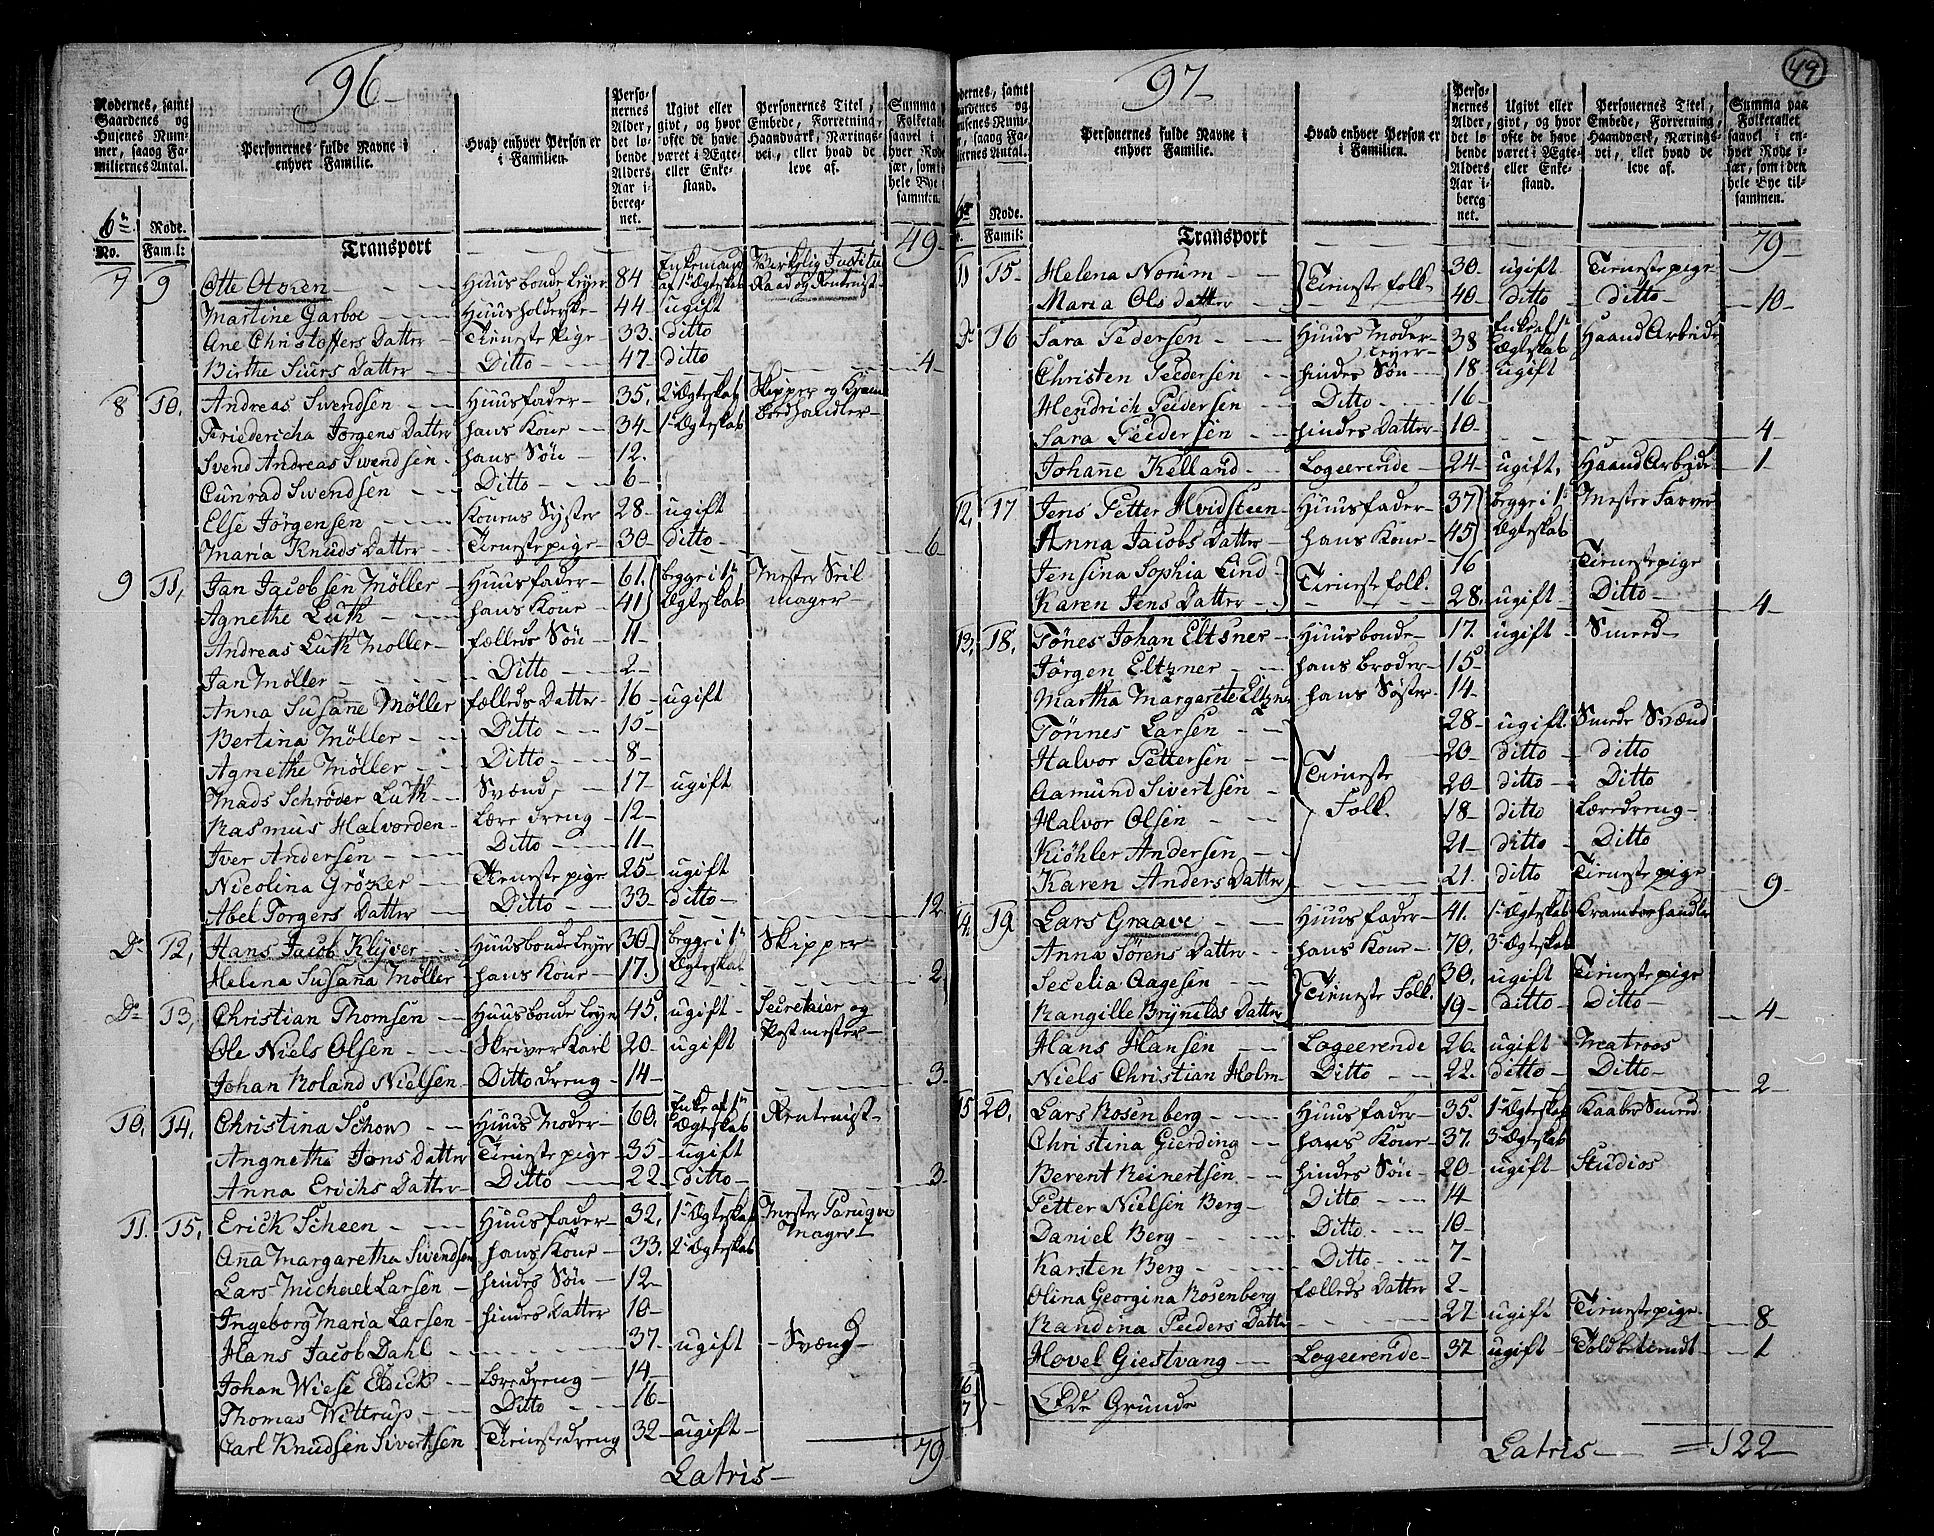 96-
Rodernes, samt Gaardenes og Husenes Nummer, saaog Familiernes Antal.
Personernes fulde Navne i enhver Familie.
Hvad enhver Person er i Familien.
Personernes Alder, det løbende Alders Aar iberegnet.
Ugivt eller givt, og hvor ofte de have været i Ægte- eller Enkestand.
Personernes Titel, Embede, Forretning, Haandværk, Næringsvei, eller hvad de leve af.
Summa Folketallet saavel i hver Rode især, som i hele Bye sammen.
6te Rode.
No. Famil:
Transport 49-
7 9 Otte Otzen Huusbonde Leyer 84 Enkemand af 1te Ægteskab Virkelig Justitz Raad og Rentenist-
Martine Garboe Huusholderske- 44- ugift
Ane Christoffers Datter Tieneste Pige- 33. ditto
Birthe Siurs Datter Ditto 47. ditto 4-
8 10, Andreas Swendsen Huusfader- 35. 2det Ægteskab Skipper og Kram Boedhandler-
Friedericha Jørgens Datter hans Kone 34- 1te Ægteskab
Svend Andreas Swendsen hans Søn 12.
Cunrad Swendsen Ditto 6-
Else Jörgensen Konens Syster 28- ugift
Maria Knuds Datter Tienestepige- 30- ditto 6-
9 11, Jan Jacobsen Möller Huusfader- 61. begge i 1te Ægteskab Mester Seilmager-
Agnethe Luth hans Kone- 41
Andreas Luth Moller- fælleds Søn 11-
Jan Möller Ditto 2-
Anna Susane Möller fælleds Datter- 16- ugift
Bertina Möller Ditto 15-
Agnethe Möller Ditto 8-
Mads Schrøder Luth Svend, 17- ugift
Rasmus Halvorden- Lære dreng 12-
Iver Andersen Ditto 11-
Nicolina Gröger Tieneste pige 25- ugift
Abel Torgers Datter Ditto 33. ditto- 12
Do 12, Hans Jacob Klÿver Huusbonde Leyer 30 begge i 1te Ægteskab Skipper-
Helena Susanna Möller hans Kone- 17. 2
Do 13, Christian Thomsen Huusbonde Leyer 45, ugift Secretaier og Postmester-
Ole Niels Olsen Skriver Karl 20- ugift
Johan Roland Nielsen Ditto dreng 14- 3-
10, 14, Christina Schow Huus Moder- 60, Enke af 1te Ægteskab Rentenist-
Angnethe Jens Datter Tienestepige 35- ugift
Anna Erichs Datter Ditto 22. ditto- 3-
11. 15, Erick Scheen Huusfader- 32, 1te Ægteskab Mester Paruqve Mager-
Anna Margaretha Swendsen hans Kone- 33. 2det Ægteskab
Lars Michael Larsen hindes Søn 12-
Ingeborg Maria Larsen hindes Datter 10-
Hans Jacob Dahl 37. ugift -Svend-
Johan Wiese Edick Lære dreng 14-
Thomas Wittrup Ditto 16-
Carl Knudsen Sivertsen Tienestedreng 32- ugift-
Latris- 79
97- 49
Personernes fulde Navne i enhver Familie.
Hvad enhver Person er i Familien.
Personernes Alder, det løbende Alders Aar iberegnet.
Ugivt eller givt, og hvor ofte de have været i Ægte- eller Enkestand.
Personernes Titel, Embede, Forretning, Haandværk, Næringsvei, eller hvad de leve af.
Summa paa Folketallet saavel i enhver Rode især, som i den hele Bye tilsammen.
6te Rode.
Famil:
Transport 79-
11 15- Helena Norum Tieneste folk. 30- ugift Tienestepige
Maria Ols datter 40- ditto ditto- 10-
Do 16 Sara Pedersen Huus Moder Leyer- 38 Enke af 1te Ægteskab Haand Arbeide
Christen Peedersen hindes Søn 18 ugift
Hendrich Peedersen Ditto 16-
Sara Peedersen hindes Datter 10- 4-
Johanne Kelland Logeerende 24- ugift, Haand Arbeide 1-
12, 17 Jens Petter Hvidsteen Huusfader- 37 begge i 1te Ægteskab Mester Farver
Anna Jacobs Datter hans Kone- 45
Jensina Sophia Lind Tieneste folk. 16 Tienestepige
Karen Jens Datter 28. ugift Ditto 4-
13, 18, Tönes Johan Eltzner Huusbonde- 17. ugift Smed-
Jörgen Eltzner hans broder- 15-
Martha Margarete Eltzner hans Søster- 14-
Tönnes Larsen Tieneste Folk. 28- ugift. Smede Svænd
Halvor Pettersen 20- ditto ditto
Aamund Sivertsen 20- ditto Ditto
Halvor Olsen 18 ditto Læredreng-
Kiöhler Andersen 21- ditto Ditto
Karen Anders Datter 21. ditto Tienestepige 9-
14. 19. Lars Graave Huusfader- 41. 1te Ægteskab Krambodhandler
Anna Sörens Datter hans Kone 70, 3die Ægteskab
Secelia Aagesen Tieneste Folk. 30, ugift Tienestepige
Rangille Brÿnilds Datter 19- ditto Ditto- 4-
Hans Hansen Logeerende 26. ugift Matroos
Niels Christian Holm Ditto 22. ditto Ditto- 2
15 20, Lars Rosenberg Huusfader- 35. 1te Ægteskab Kaaber Smed.
Christina Gierding hans Kone- 37. 3die Ægteskab
Berent Reinertsen hindes Søn 20- ugift- Studios
Petter Nielsen Berg Ditto 14
Daniel Berg Ditto 10-
Karsten Berg Ditto 7-
Olina Georgina Rosenberg fælleds Datter 2-
Randina Peeders Datter 27 ugift Tienestepige- 8
Hovel Giestvang Logeerende- 37 ugift Toldbetiendt 1
16 17 Øde Grunde
Latris- =122-